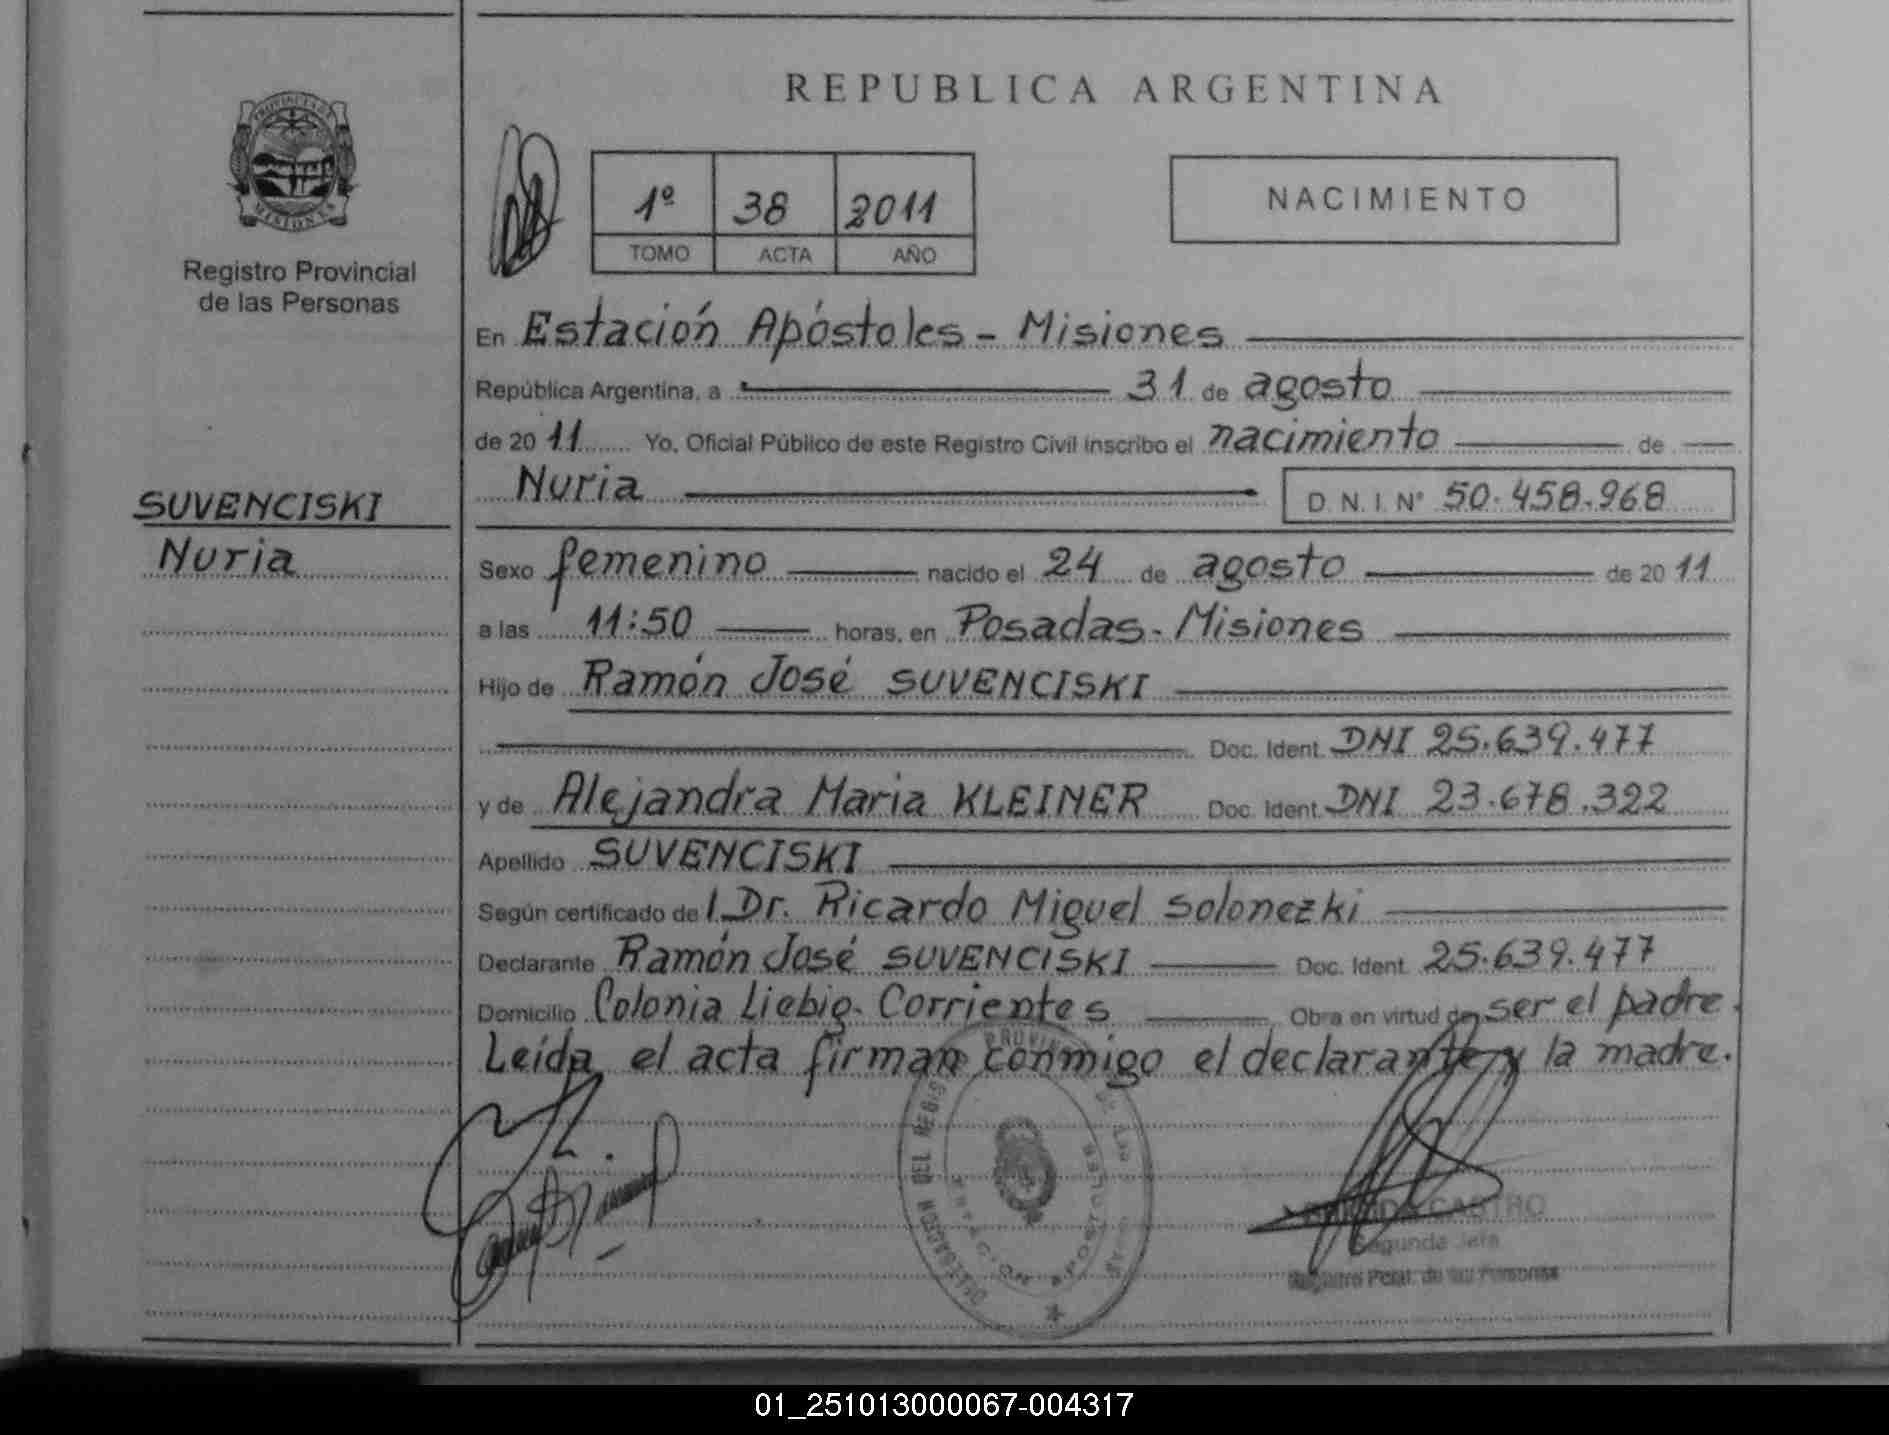 REPUBLICA ARGENTINA
PROVINCIA DE
MISIONES
Registro Provincial
de las Personas
1º 38 2011
TOMO ACTA AÑO
NACIMIENTO
En Estación Apóstoles - Misiones
República Argentina, a 31 de agosto
de 2011 Yo, Oficial Público de este Registro Civil inscribo el nacimiento de
Nuria D.N.I. Nº 50.458.968
SUVENCISKI
Nuria
Sexo femenino nacido el 24 de agosto de 2011
a las 11:50 horas, en Posadas - Misiones
Hijo de Ramón José SUVENCISKI
Doc. Ident. DNI 25.639.477
y de Alejandra Maria KLEINER Doc. Ident. DNI 23.678.322
Apellido SUVENCISKI
Según certificado de l Dr. Ricardo Miguel Solonezki
Declarante Ramón José SUVENCISKI Doc. Ident. 25.639.477
Domicilio Colonia Liebig - Corrientes Obra en virtud de ser el padre.
Leída el acta firman conmigo el declarante y la madre.
DELEGACION DEL REGISTRO PROVINCIAL DE LAS
ESTACION APOSTOLES
CASTRO
Segunda Jefa
Registro Pcial. de las Personas
01_251013000067-004317